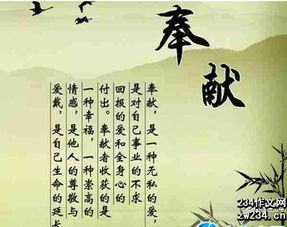 奉献
奉献，是一种无私的爱，
是对自己事业的不求
回报的爱和全身心的
付出。奉献者收获的是
一种幸福，一种崇高的
情感，是他人的尊敬与
爱戴，是自己生命的延长
234作文网
zw234.cn